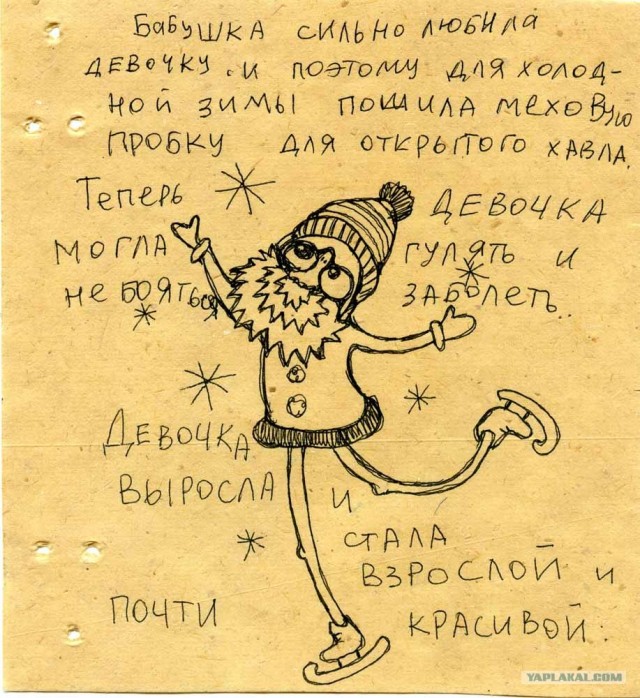 БАБУШКА СИЛЬНО ЛЮБИЛА
ДЕВОЧКУ. И ПОЭТОМУ ДЛЯ ХОЛОД-
НОЙ ЗИМЫ ПОШИЛА МЕХОВУЮ
ПРОБКУ ДЛЯ ОТКРЫТОГО ХАВЛА.
ТЕПЕРЬ ДЕВОЧКА
МОГЛА ГУЛЯТЬ И
НЕ БОЯТЬСЯ ЗАБОЛЕТЬ..
ДЕВОЧКА
ВЫРОСЛА И
СТАЛА
ВЗРОСЛОЙ И
ПОЧТИ КРАСИВОЙ.
YAPLAKAL.COM